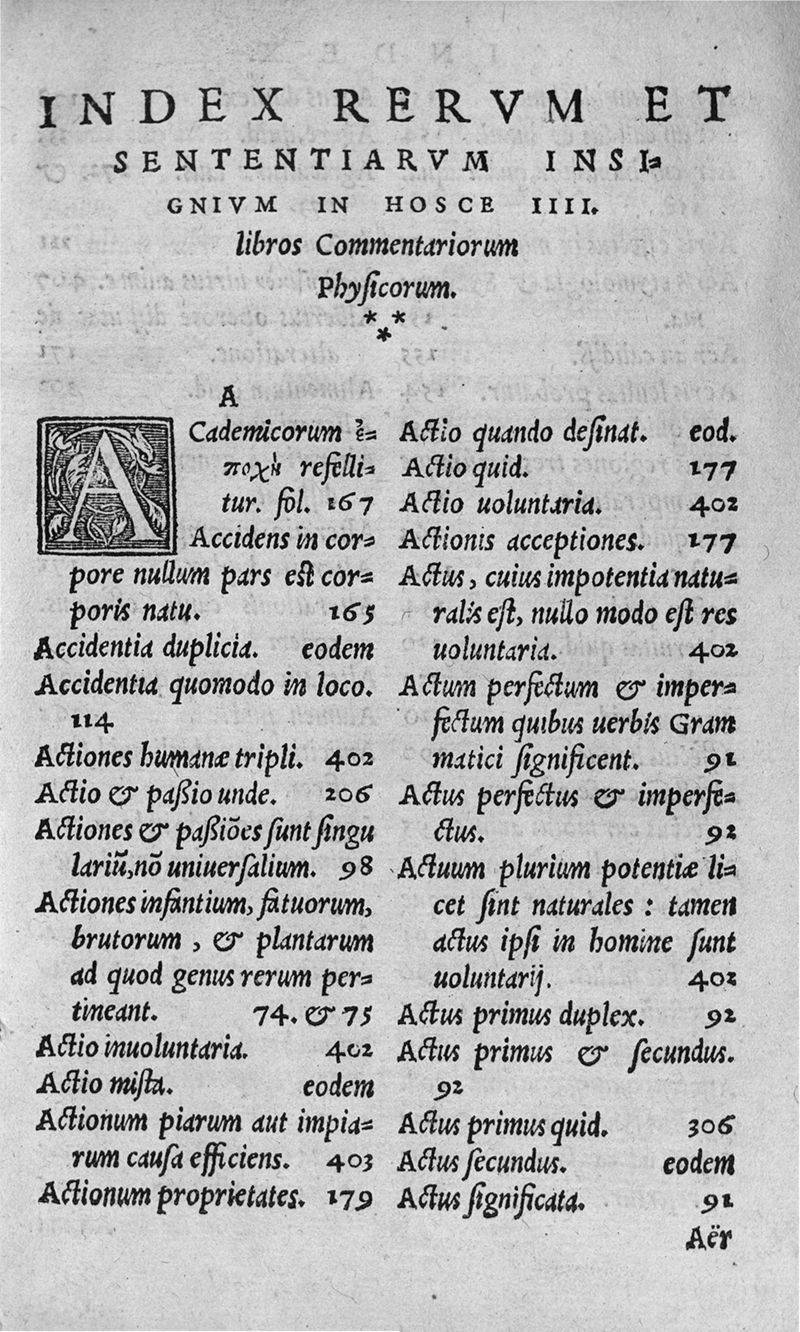 INDEX RERVM ET
SENTENTIARVM INSI=
GNIVM IN HOSCE IIII.
libros Commentariorum
Physicorum.
* *
*
A
ACademicorum ἐ=
ποχὴ refelli=
tur. fol. 167
Accidens in cor=
pore nullum pars est cor=
poris natu. 165
Accidentia duplicia. eodem
Accidentia quomodo in loco.
114
Actiones humanæ tripli. 402
Actio & paßio unde. 206
Actiones & paßiões sunt singu
lariũ, nõ uniuersalium. 98
Actiones infantium, fatuorum,
brutorum, & plantarum
ad quod genus rerum per=
tineant. 74. & 75
Actio inuoluntaria. 402
Actio mista. eodem
Actionum piarum aut impia=
rum causa efficiens. 403
Actionum proprietates. 179
Actio quando desinat. eod.
Actio quid. 177
Actio uoluntaria. 402
Actionis acceptiones. 177
Actus, cuius impotentia natu=
ralis est, nullo modo est res
uoluntaria. 402
Actum perfectum & imper=
fectum quibus uerbis Gram
matici significent. 91
Actus perfectus & imperfe=
ctus. 92
Actuum plurium potentiæ li=
cet sint naturales : tamen
actus ipsi in homine sunt
uoluntarij. 402
Actus primus duplex. 92
Actus primus & secundus.
92
Actus primus quid. 306
Actus secundus. eodem
Actus significata. 91
Aër